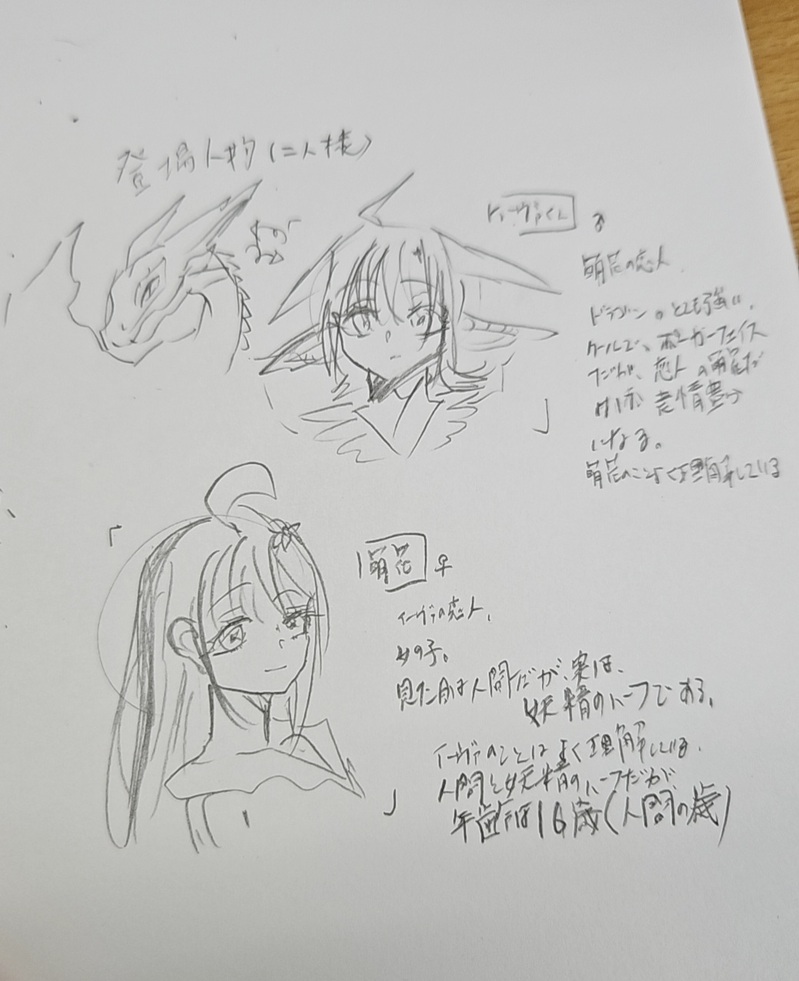 登場人物(二人様)
♂
萌花の恋人
ドラゴン。とても強い。
クールで、ポーカーフェイス
だが、恋人の萌花が
表情豊か
になる。
萌花のことよく理解している
萌花 ♀
イーヴァの恋人。
女の子。
見た目は人間だが、実は、
妖精のハーフである。
イーヴァのことはよく理解している。
人間と妖精のハーフだが
年齢は16歳(人間の歳)